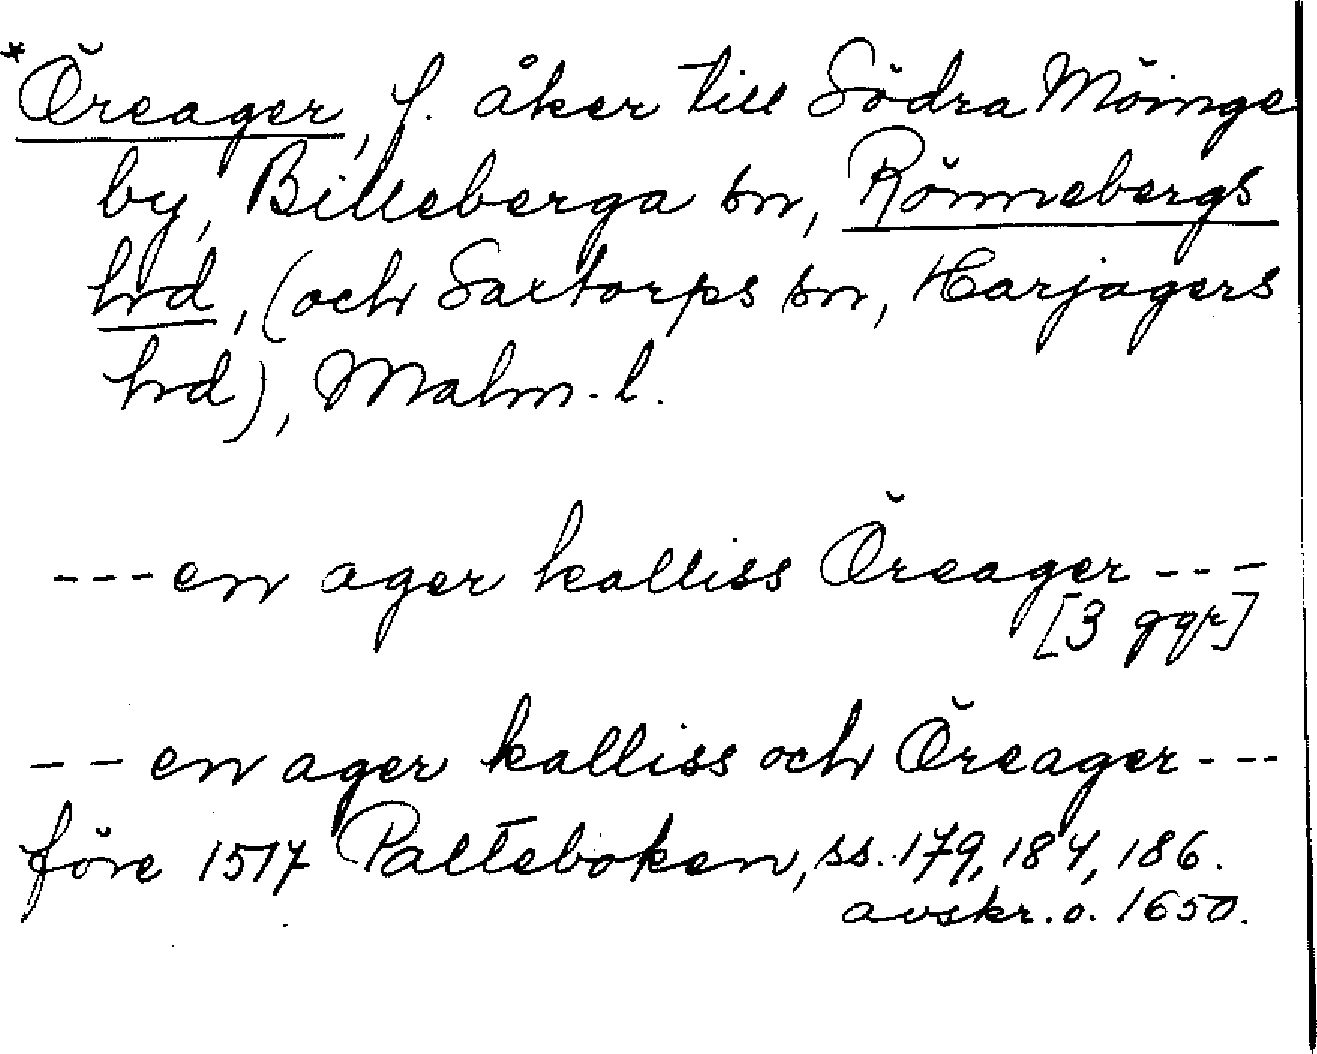 *Öreager, f. åker till Södra Möinge
by, Billeberga sn, Rönnebergs
hrd, (och Saxtorps sn, Harjagers
hrd), Malm. l.
---en ager kalliss Öreager---
[3 ggr]
--en ager kalliss och Öreager---
före 1517 Palteboken, ss. 179, 184, 186.
avskr. o. 1650.